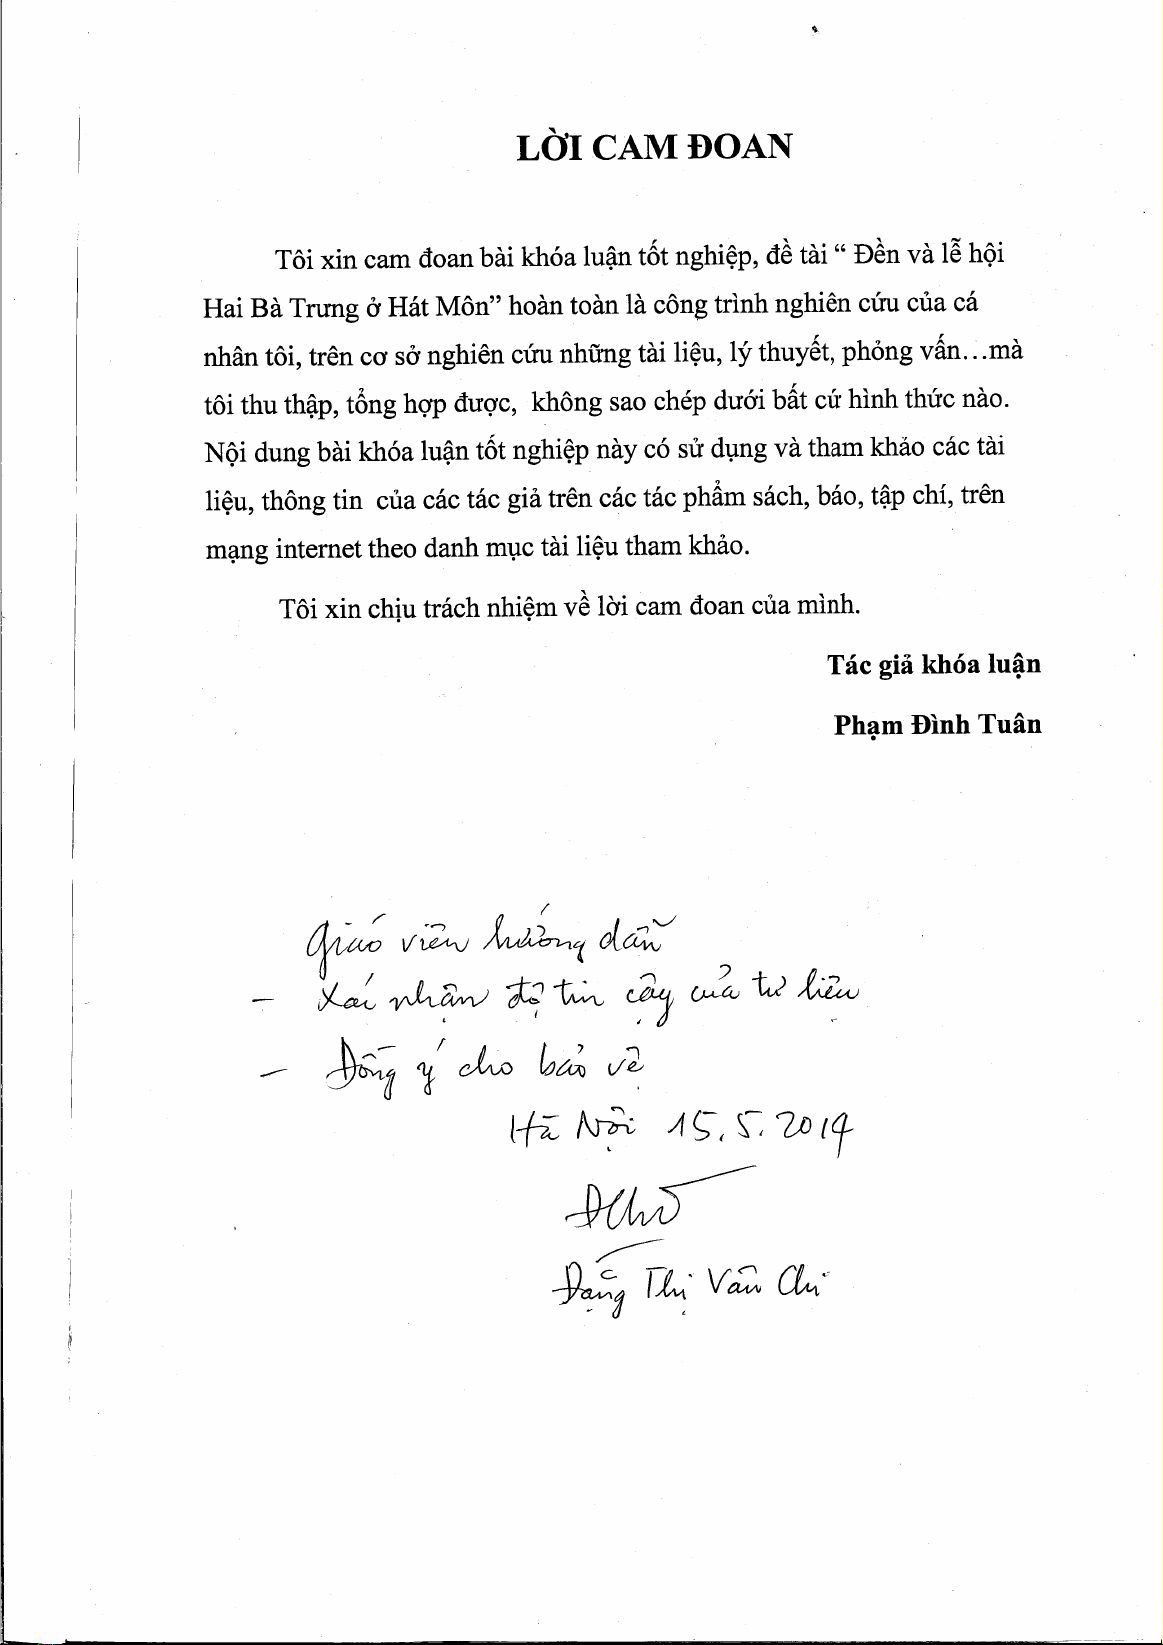 LỜI CAM ĐOAN
Tôi xin cam đoan bài khóa luận tốt nghiệp, đề tài “ Đền và lễ hội
Hai Bà Trưng ở Hát Môn” hoàn toàn là công trình nghiên cứu của cá
nhân tôi, trên cơ sở nghiên cứu những tài liệu, lý thuyết, phỏng vấn…mà
tôi thu thập, tổng hợp được, không sao chép dưới bất cứ hình thức nào.
Nội dung bài khóa luận tốt nghiệp này có sử dụng và tham khảo các tài
liệu, thông tin của các tác giả trên các tác phẩm sách, báo, tập chí, trên
mạng internet theo danh mục tài liệu tham khảo.
Tôi xin chịu trách nhiệm về lời cam đoan của mình.
Tác giả khóa luận
Phạm Đình Tuân
Giáo viên hướng dẫn
- Xác nhận độ tin cậy của tư liệu
- Đồng ý cho bảo vệ
Hà Nội 15.5.2014
Đặng Thị Vân Chi